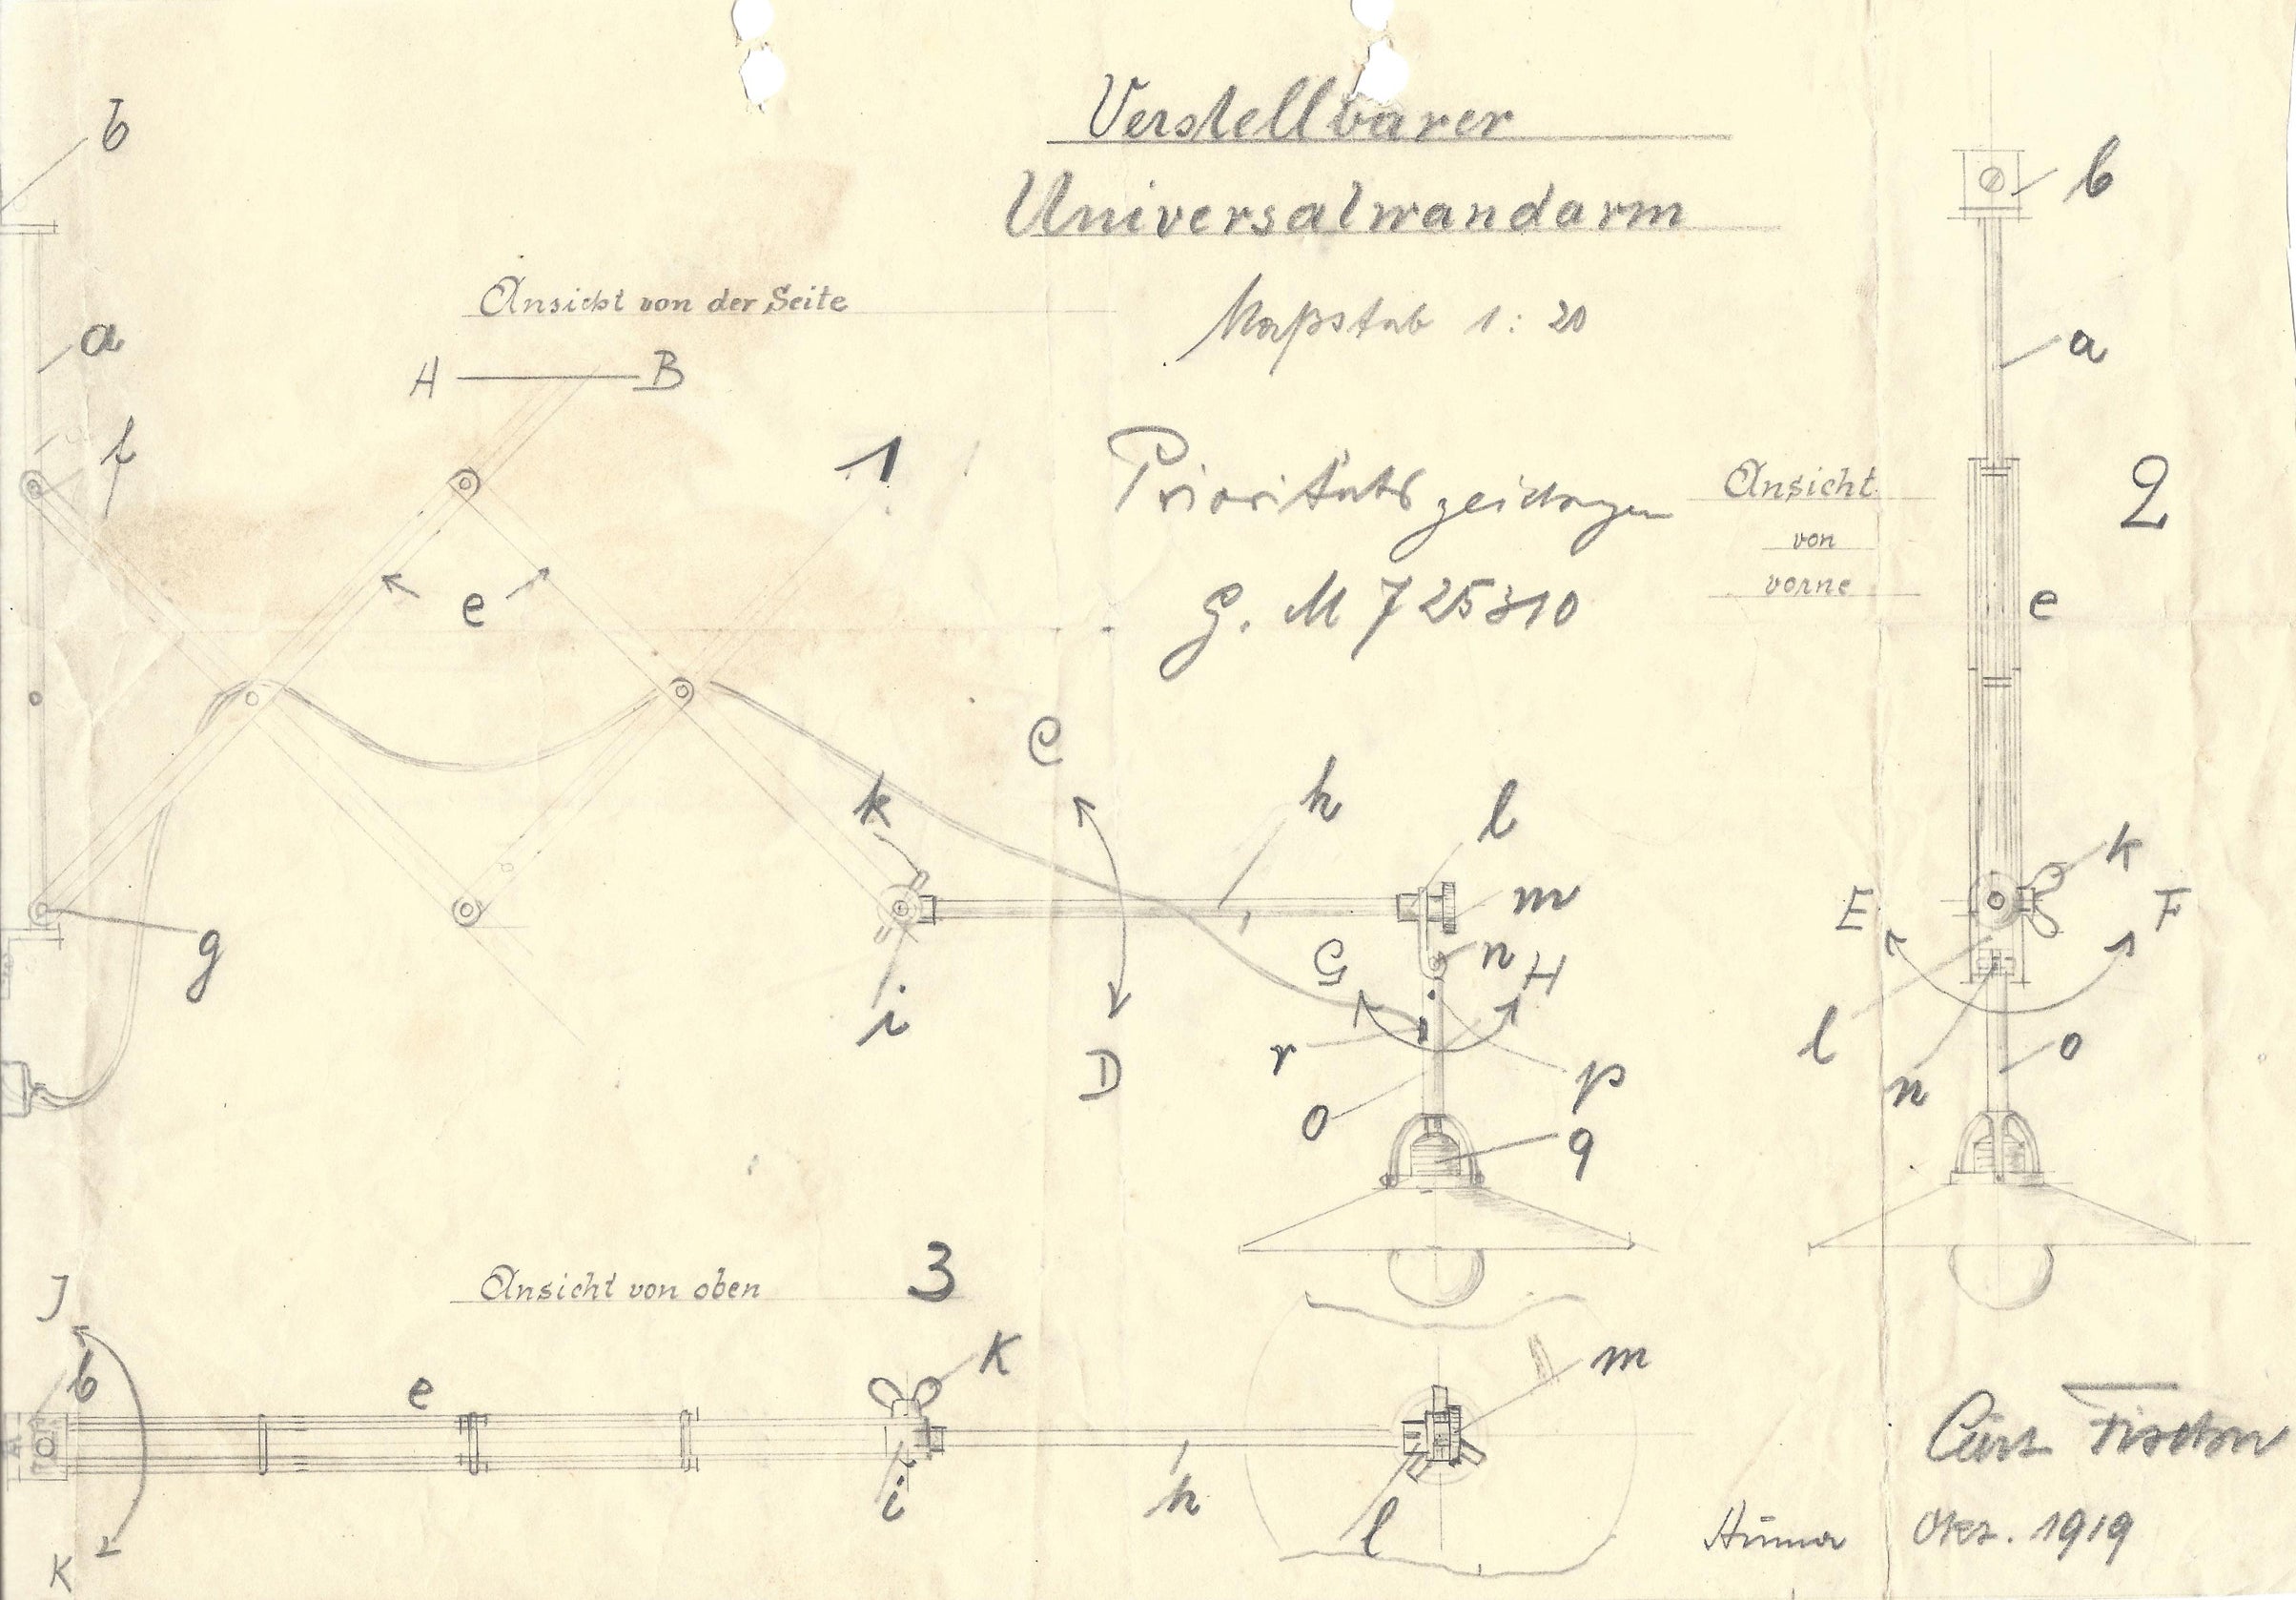 Verstellbarer
Universalwandarm
Maßstab 1:20
Prioritätszeichnungen
G. M 725310
Ansicht von der Seite
A B
1
b
a
f
e
g
k
i
C
D
h
l
m
n
G H
r
o
p
q
Ansicht
von
vorne
2
b
a
e
k
E F
l
n
o
Ansicht von oben
3
J
b
K
e
K
i
h
m
l
Curt Fischer
Okt. 1919